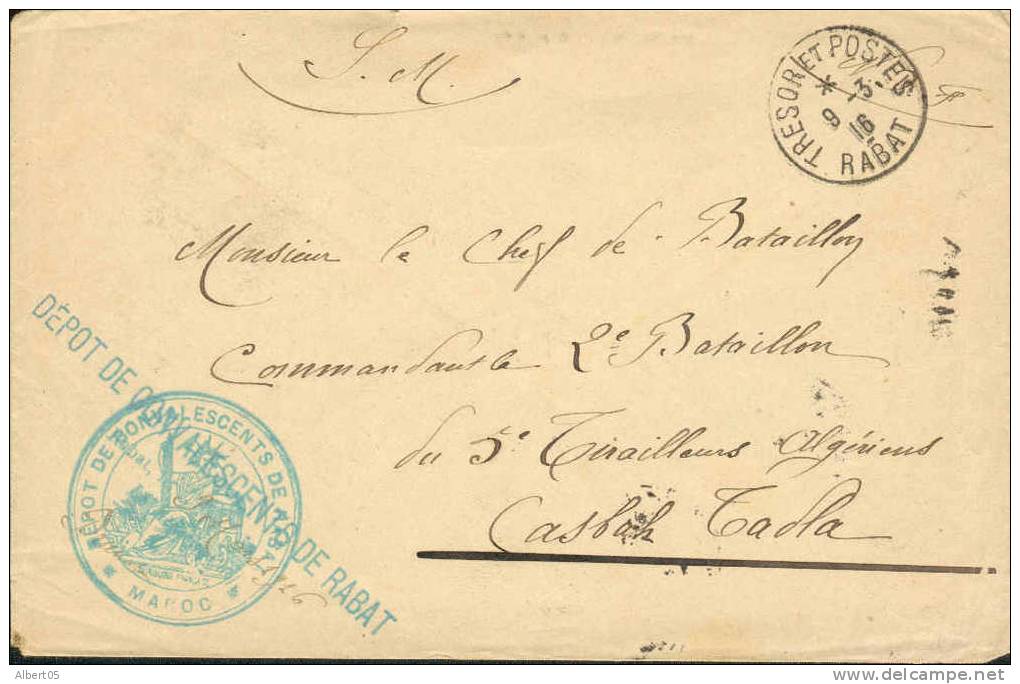 S. M.
TRESOR ET POSTES
* 9 -3 16
RABAT
Monsieur le Chef de Bataillon
Commandant le 2e Bataillon
du 5e Tirailleurs Algériens
Casbah Tadla
DÉPOT DE CONVALESCENTS DE RABAT
DÉPOT DE CONVALESCENTS DE RABAT
* MAROC *
Albert05
delcampe.net